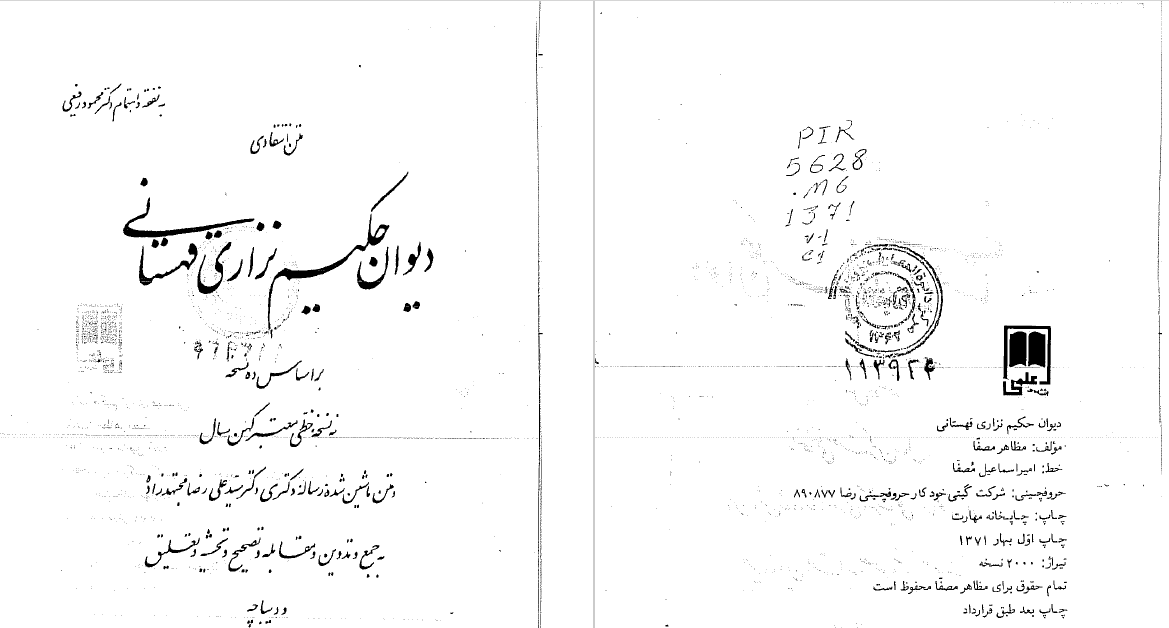 به نفقه و اهتمام دکتر محمود رفیعی
متن انتقادی
دیوان حکیم نزاری قهستانی
بر اساس ده نسخه
نه نسخه خطی معتبر کهن سال
و متن ماشین شدهٔ رسالهٔ دکتری دکتر سید علی رضا مجتهدزاده
به جمع و تدوین و مقابله و تصحیح و تحشیه و تعلیق
و دیباچه
PIR
5628
.M6
1371
v.1
c1
۱۱۳۹۲۴
علمی
دیوان حکیم نزاری قهستانی
مؤلف: مظاهر مصفّا
خط: امیراسماعیل مُصفّا
حروفچینی: شرکت گیتی خودکار حروفچینی رضا ۸۹۰۸۷۷
چاپ: چاپخانه مهارت
چاپ اوّل بهار ۱۳۷۱
تیراژ: ۲۰۰۰ نسخه
تمام حقوق برای مظاهر مصفّا محفوظ است
چاپ بعد طبق قرارداد